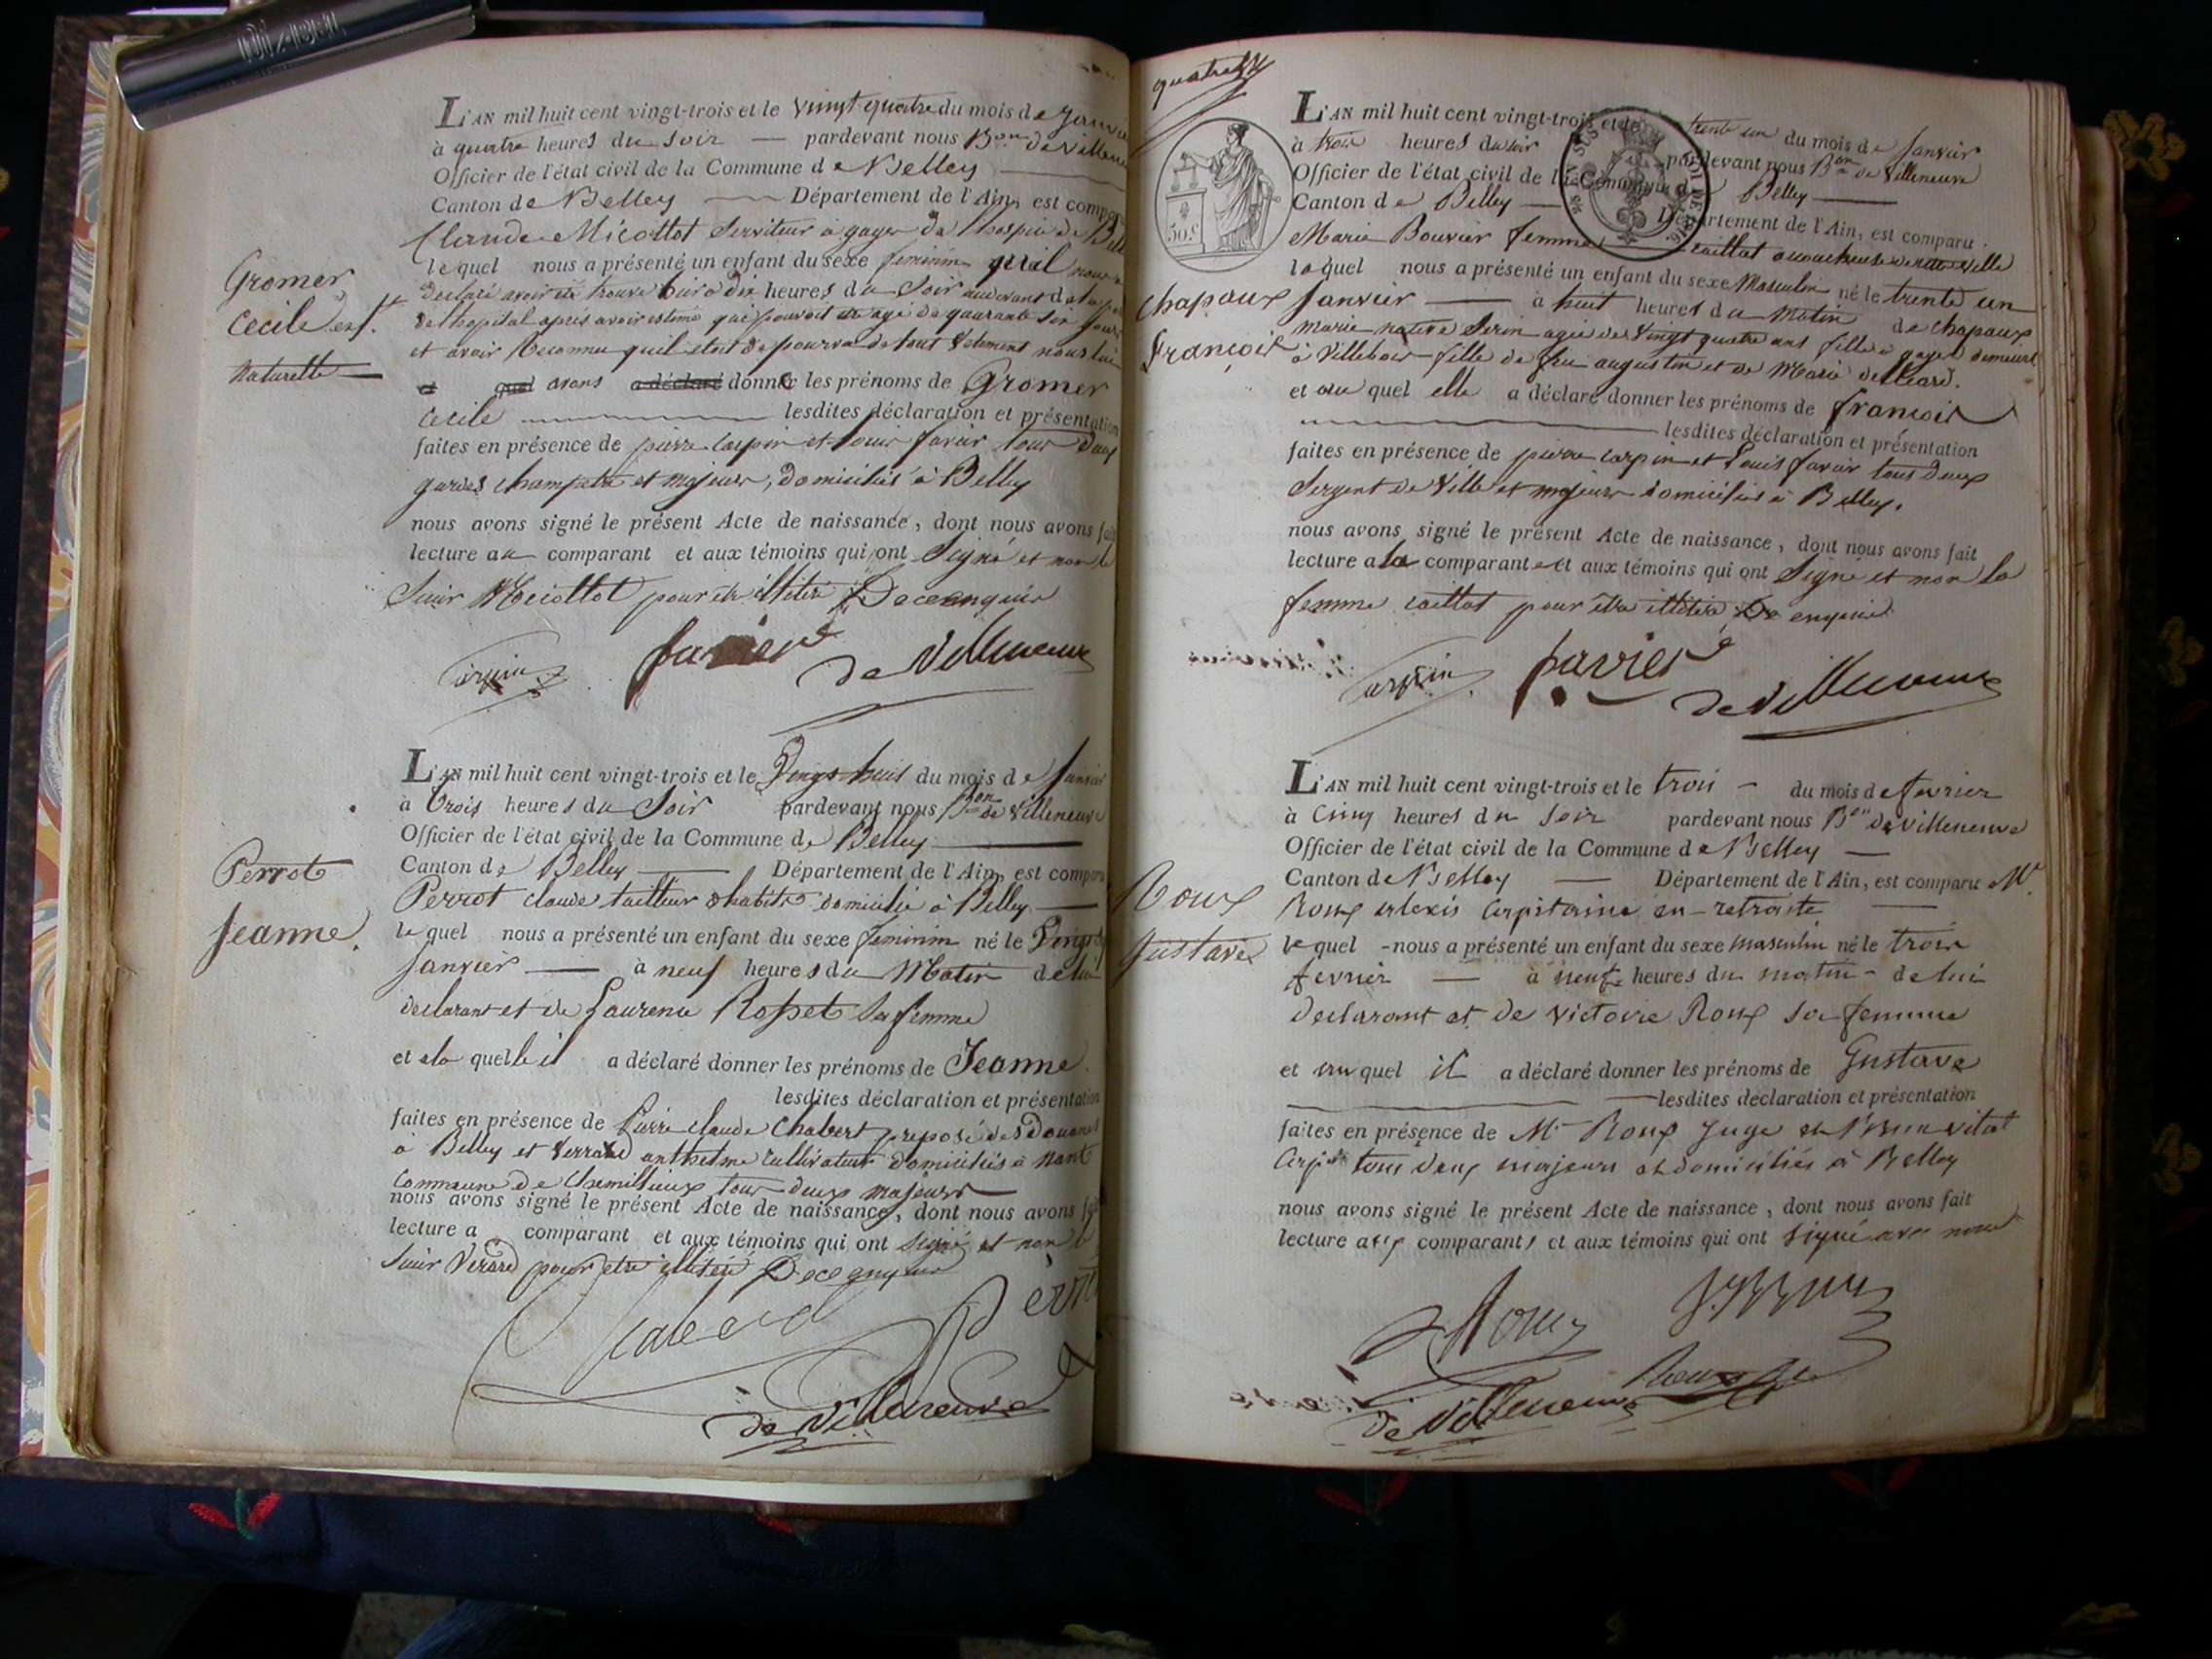 L'AN mil huit cent vingt-trois et le Vingt quatre du mois de
à quatre heures du Soir — pardevant nous Bon de
Officier de l'état civil de la Commune de Belley
Canton de Belley — Département de l'Ain, est
Claude Micottot Serviteur à gages de l'hospice de
Gromer
Cecile enf.t
Naturelle
lequel nous a présenté un enfant du sexe feminin qu'il nous
declaré avoir été trouvé heures du Soir
de l'hopital après avoir estimé que pouvoit etre agé de quarante six jours
et avoir reconnu quil etoit depourvu de tout Vetement nous lui
et quel avons a déclaré donné les prénoms de Gromer
Cecile lesdites déclaration et présentation
faites en présence de pierre Carpin et Louis favier tous deux
gardes champetre et majeurs, domiciliés à Belley
nous avons signé le présent Acte de naissance, dont nous avons
lecture au comparant et aux témoins qui ont Signé et non le
Sieur Micottot pour être illitéré De ce enquis
Carpin favier de Villeneuve
L'AN mil huit cent vingt-trois et le Vingt huit du mois de
à trois heures du Soir pardevant nous Bon de Villeneuve
Officier de l'état civil de la Commune de Belley
Canton de Belley — Département de l'Ain, est
Perrot
Jeanne.
Perrot Claude tailleur d'habits domicilié à Belley
lequel nous a présenté un enfant du sexe feminin né le
Janvier — à neuf heures du Matin de lui
declarant et de Laurence Rosset sa femme
et a la quelle il a déclaré donner les prénoms de Jeanne
lesdites déclaration et présentation
faites en présence de Pierre Claude Chabert preposé des Douanes
à Belley et Verrard anthelme Cultivateur domiciliés à Nant
Commune de Chemillieux tous deux majeurs
nous avons signé le présent Acte de naissance, dont nous avons
lecture a comparant et aux témoins qui ont signé et non le
Sieur Verard pour etre illitéré De ce enquis
Chabert Perrot
de Villeneuve
quatre
50.c
L'AN mil huit cent vingt-trois et le trente un du mois de Janvier
à trois heures du soir pardevant nous Bon de Villeneuve
Officier de l'état civil de la Commune de Belley
Canton de Belley — Département de l'Ain, est comparu
Marie Bouvier femme Caillat acoucheuse de cette Ville
Chapoux
François
laquel nous a présenté un enfant du sexe Masculin né le trente un
Janvier — à huit heures du Matin de Chapoux
Marie native Serin agée de Vingt quatre ans fille à gages demeurt
à Villebois fille de feu augustin et de Marie
et au quel elle a déclaré donner les prénoms de françois
lesdites déclaration et présentation
faites en présence de pierre Carpin et Louis favier tous deux
Sergent de Ville et majeurs domiciliés à Belley.
nous avons signé le présent Acte de naissance, dont nous avons fait
lecture a la comparante et aux témoins qui ont Signé et non la
femme Caillat pour être illitéré De ce enquise
Carpin favier
de Villeneuve
L'AN mil huit cent vingt-trois et le trois — du mois de fevrier
à Cinq heures du Soir pardevant nous Bon de Villeneuve
Officier de l'état civil de la Commune de Belley —
Canton de Belley — Département de l'Ain, est comparu Mr
Roux
Gustave
Roux Alexis Capitaine en retraite
lequel - nous a présenté un enfant du sexe masculin né le trois
fevrier — à neuf heures du matin - de lui
declarant et de Victoire Roux sa femme
et au quel il a déclaré donner les prénoms de Gustave
lesdites déclaration et présentation
faites en présence de Mr Roux Juge et
tous deux majeurs et domiciliés à Belley
nous avons signé le présent Acte de naissance, dont nous avons fait
lecture aux comparants et aux témoins qui ont signé avec nous
Roux
Roux
de Villeneuve